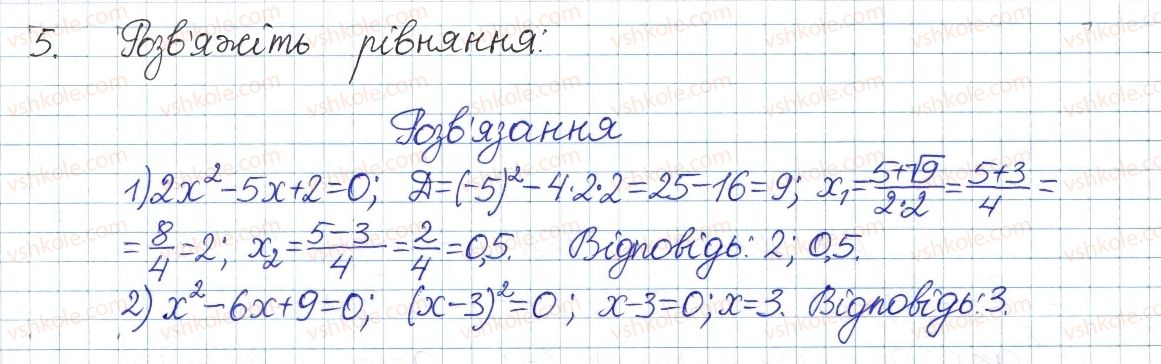 5. Розв'яжіть рівняння:
Розв'язання
1) 2x² - 5x + 2 = 0; Д = (-5)² - 4·2·2 = 25 - 16 = 9; x₁ = (5+√9)/(2·2) = (5+3)/4 =
= 8/4 = 2; x₂ = (5-3)/4 = 2/4 = 0,5. Відповідь: 2; 0,5.
2) x² - 6x + 9 = 0; (x - 3)² = 0; x - 3 = 0; x = 3. Відповідь: 3.